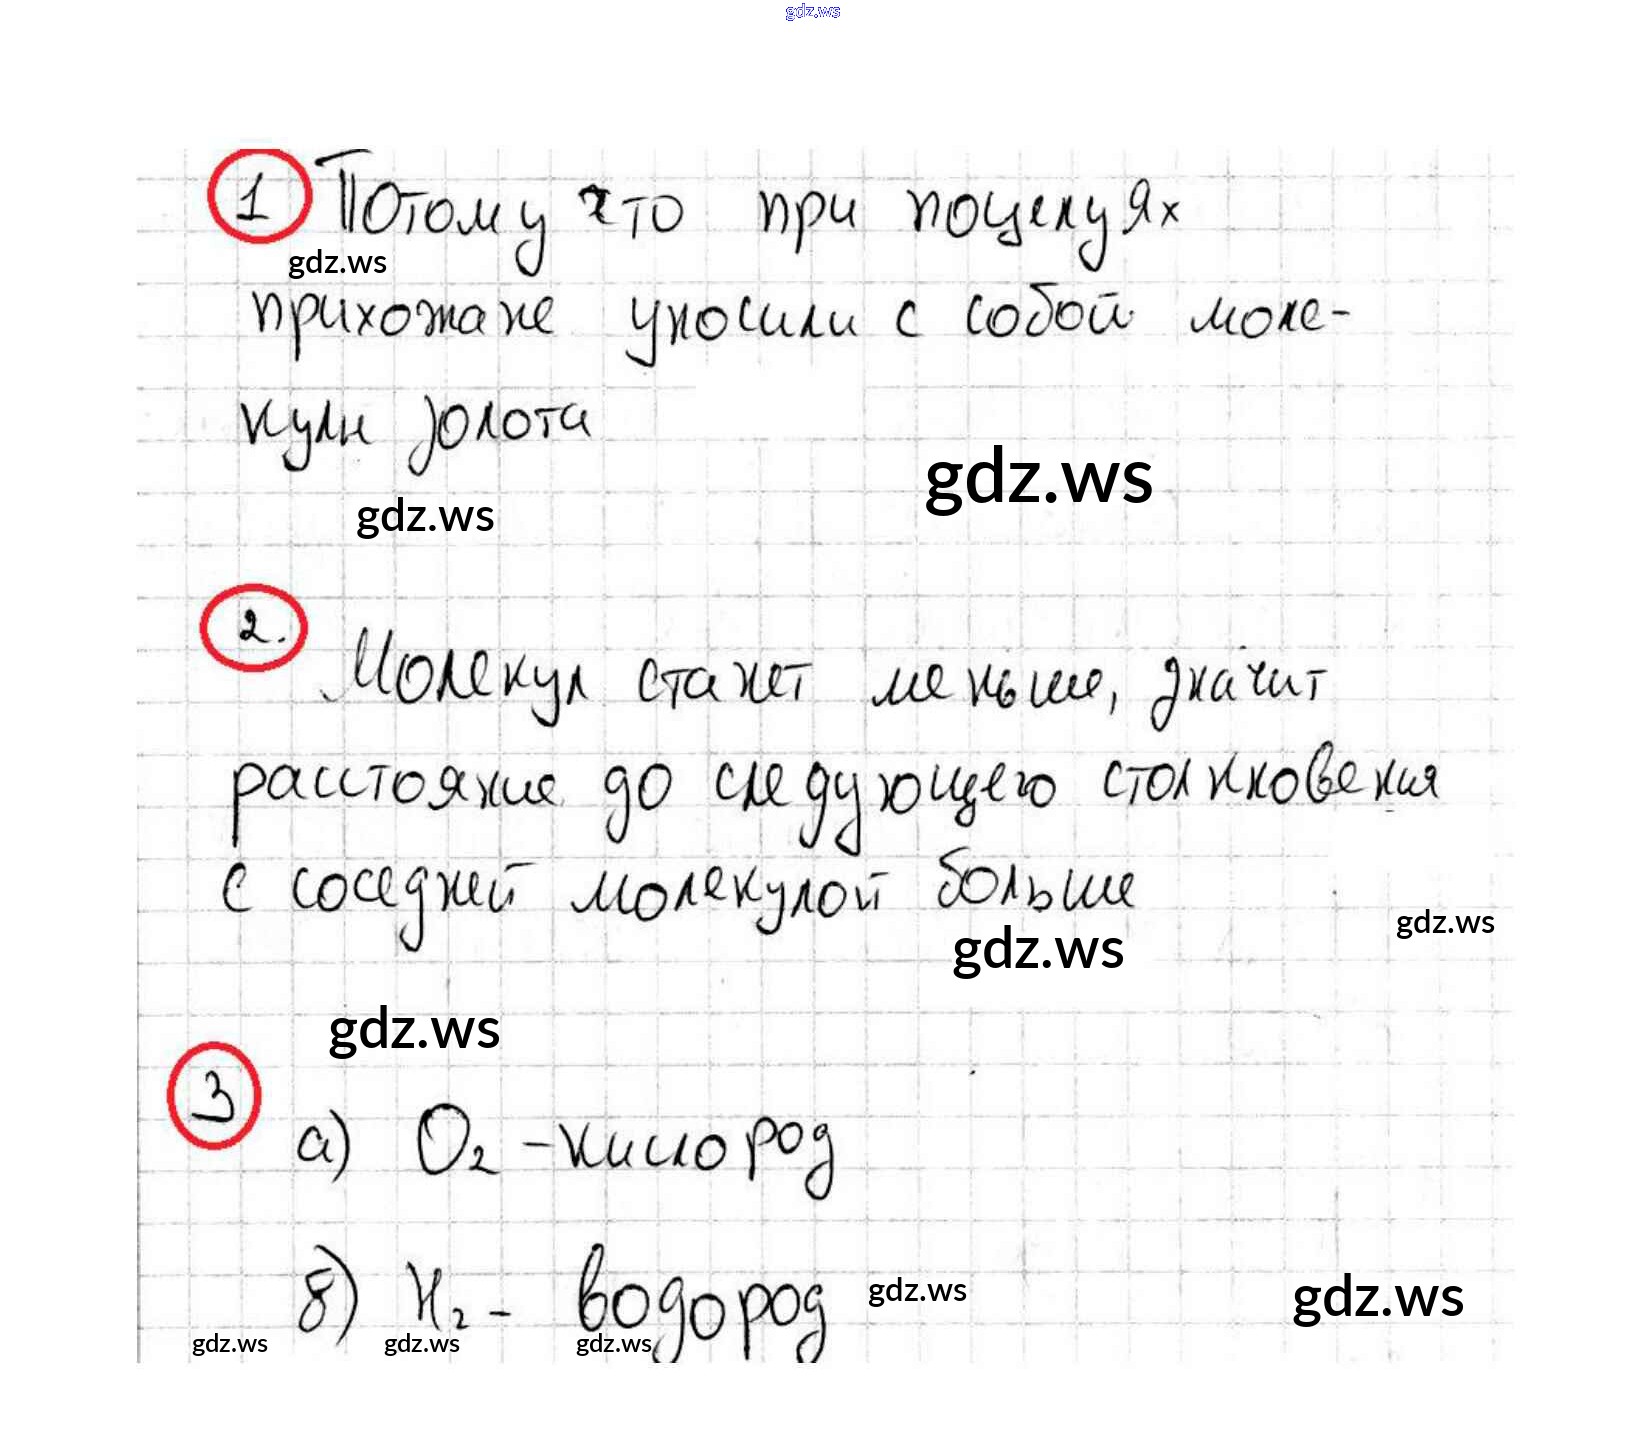 gdz.ws
1 Потому что при поцелуях
gdz.ws
прихожане уносили с собой моле-
кулы золота
gdz.ws
gdz.ws
2. Молекул станет меньше, значит
расстояние до следующего столкновения
с соседней молекулой больше
gdz.ws
gdz.ws
gdz.ws
3 а) O2 - кислород
б) H2 - водород
gdz.ws
gdz.ws
gdz.ws gdz.ws gdz.ws